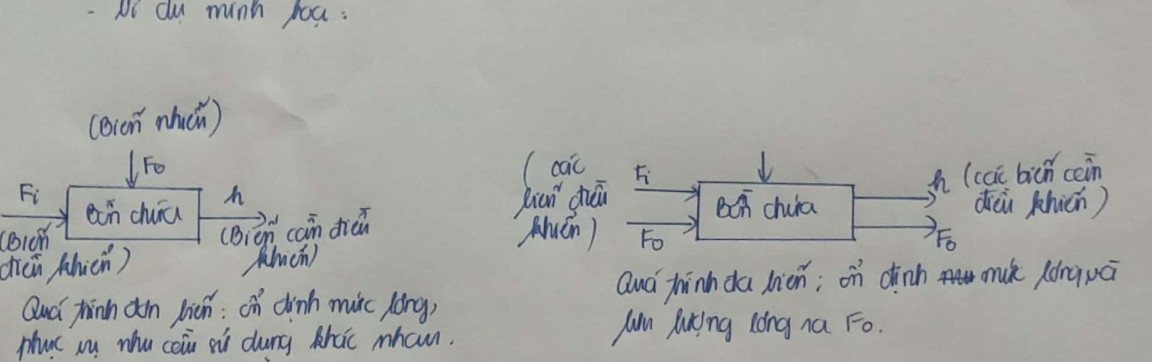 - Ví dụ minh hoạ :
(Biến nhiễu)
F₀
Fi
Bồn chứa
h
(Biến
điều khiển)
(Biến cần điều
khiển)
Quá trình đơn biến : ổn định mức lỏng,
phục vụ nhu cầu sử dụng khác nhau.
(các
biến điều
khiển)
Fi
F₀
Bồn chứa
h (các biến cần
điều khiển)
F₀
Quá trình đa biến ; ổn định mức lỏng và
lưu lượng lỏng ra F₀.